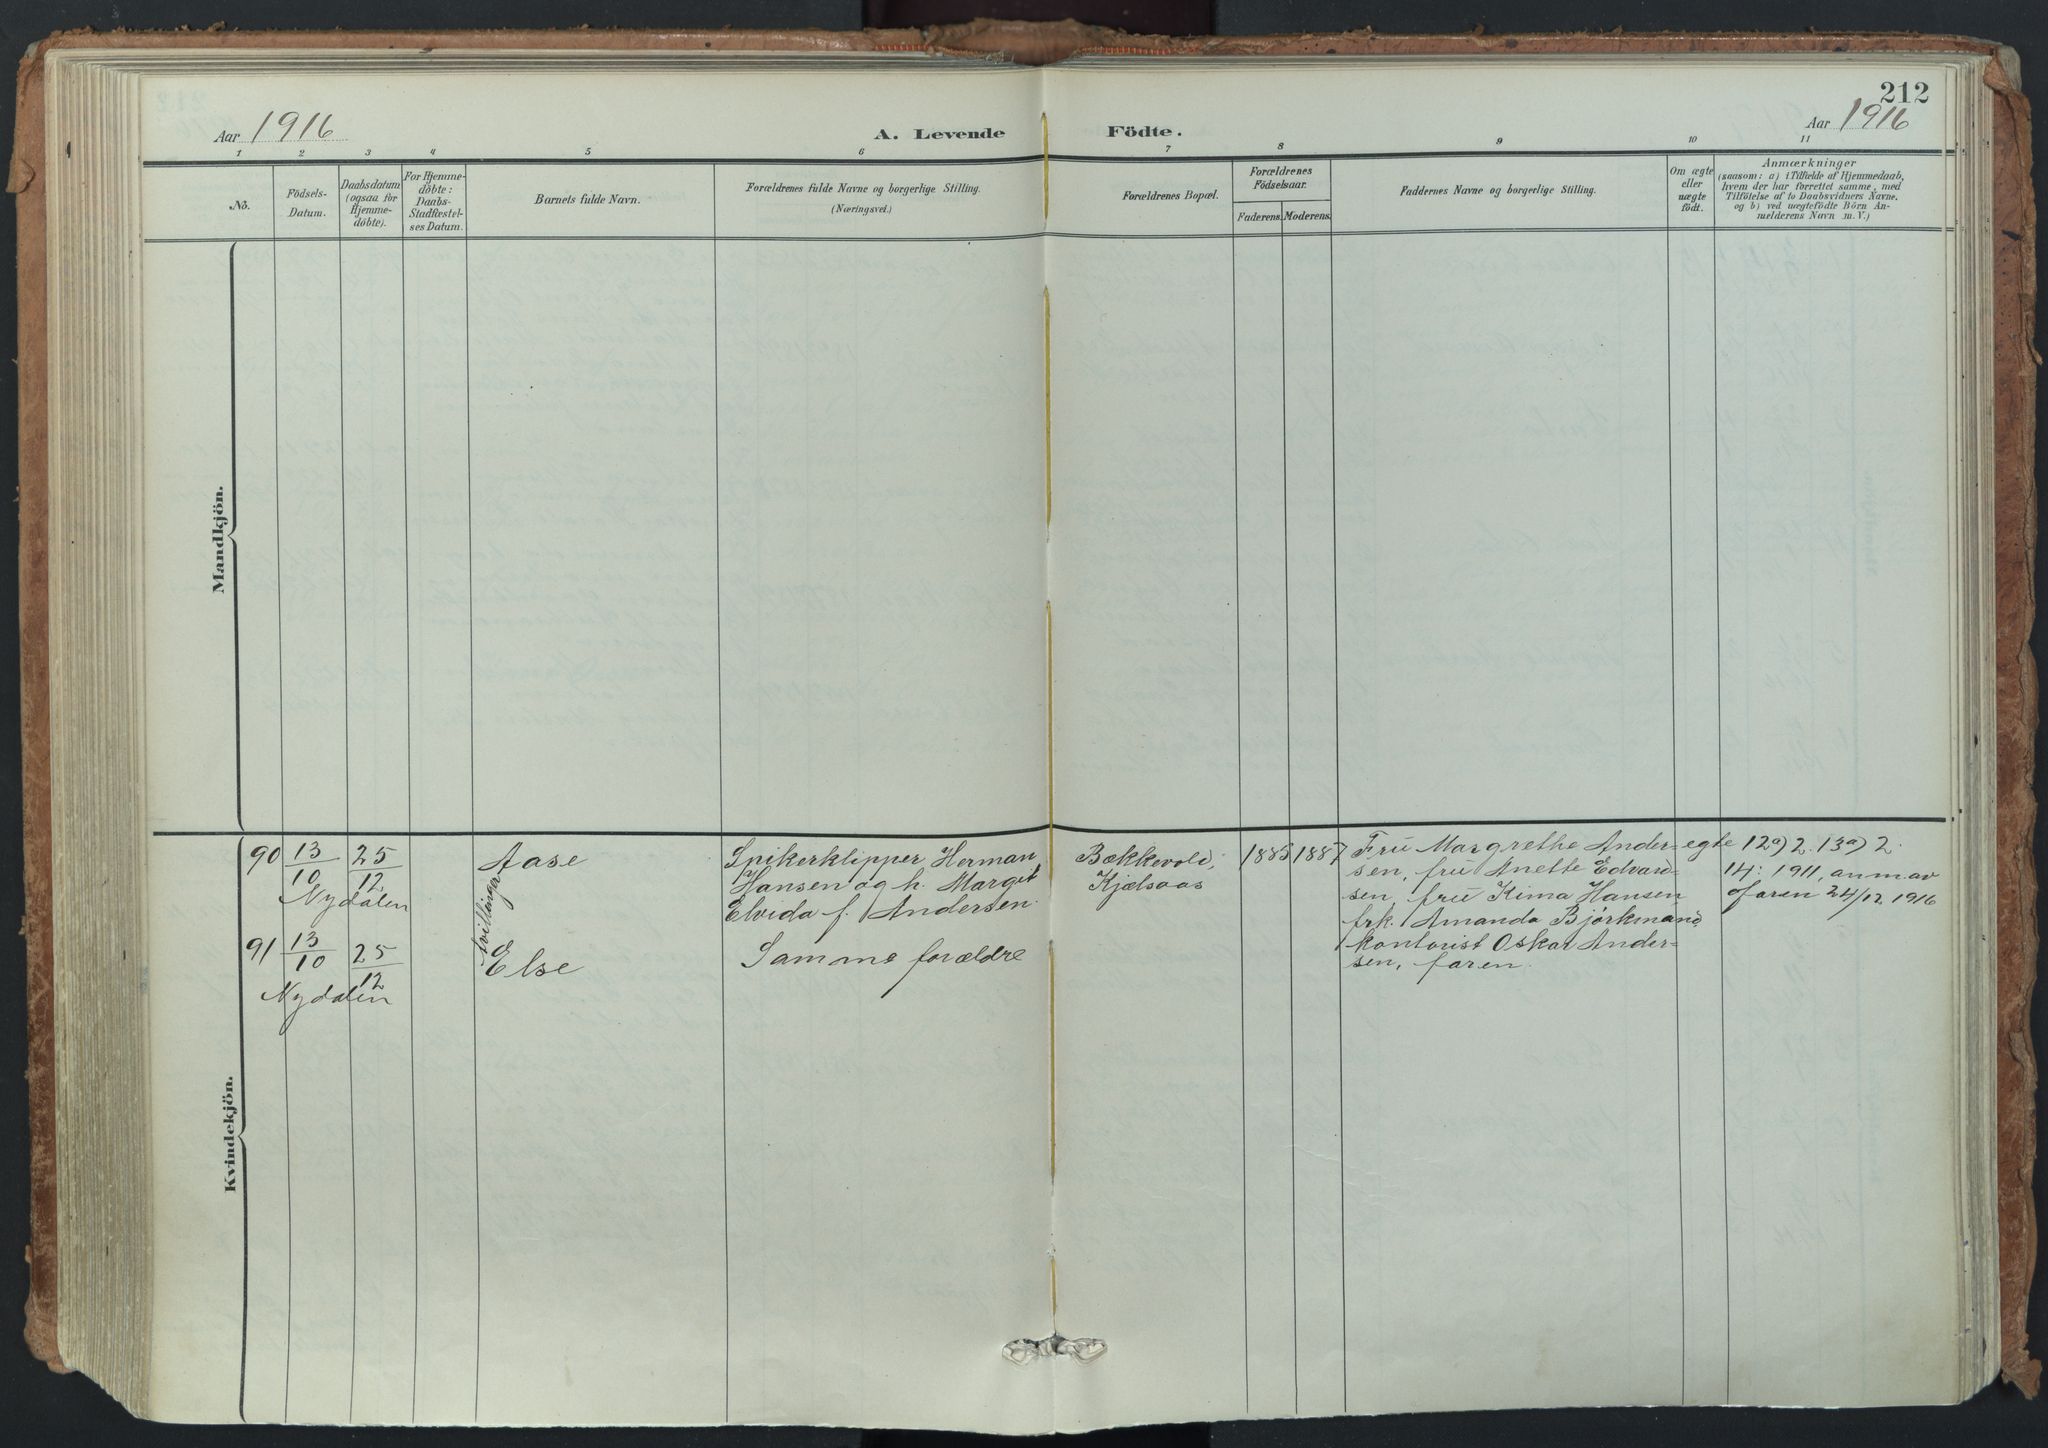 212
Aar 1916
A. Levende Födte.
Aar 1916
1 2 3 4 5 6 7 8 9 10 11
No.
Födsels-
Datum.
Daabsdatum
(ogsaa for
Hjemme-
döbte).
For Hjemme-
döbte:
Daabs-
Stadfæstel-
ses Datum.
Barnets fulde Navn.
Forældrenes fulde Navne og borgerlige Stilling.
(Næringsvei.)
Forældrenes Bopæl.
Forældrenes
Födselsaar.
Faderens. Moderens.
Faddernes Navne og borgerlige Stilling.
Om ægte
eller
uægte
födt.
Anmærkninger
(saasom: a) i Tilfælde af Hjemmedaab,
hvem der har forrettet samme, med
Tilföielse af to Daabsvidners Navne,
og b) ved uægtefödte Börn An-
melderens Navn m. V.)
Mandkjön.
Kvindekjön.
90 13/10 25/12
Nydalen
tvillinger
Aase
Spikerklipper Herman
Hansen og h. Margit
Elvida f. Andersen.
Bækkevold,
Kjælsaas
1885 1887
Fru Margrethe Ander-
sen, fru Anette Edvard-
sen, fru Kima Hansen
frk. Amanda Björkmand,
kontorist Oskar Ander-
sen, faren.
egte
12a) 2. 13a) 2.
14: 1911, anm av
faren 24/12 1916
91 13/10 25/12
Nydalen
Else
Samme forældre